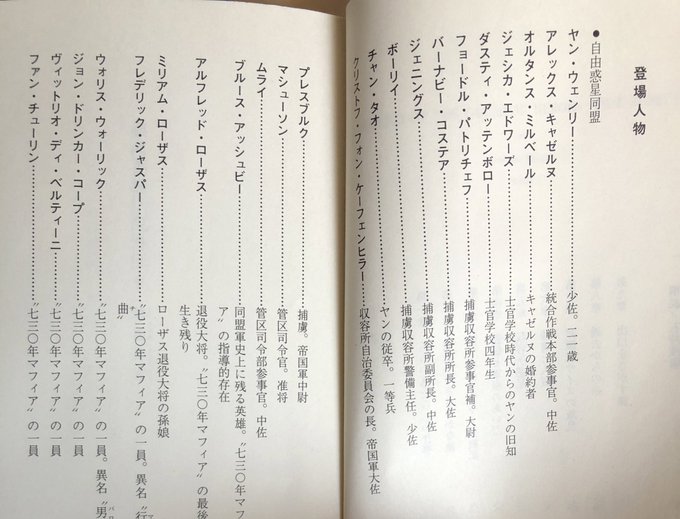 登場人物
●自由惑星同盟
ヤン・ウェンリー……………少佐。二一歳
アレックス・キャゼルヌ……………統合作戦本部参事官。中佐
オルタンス・ミルベール……………キャゼルヌの婚約者
ジェシカ・エドワーズ……………士官学校時代からのヤンの旧知
ダスティ・アッテンボロー……………士官学校四年生
フョードル・パトリチェフ……………捕虜収容所参事官補。大尉
バーナビー・コステア……………捕虜収容所所長。大佐
ジェニングス……………捕虜収容所副所長。中佐
ボーリイ……………捕虜収容所警備主任。少佐
チャン・タオ……………ヤンの従卒。一等兵
クリストフ・フォン・ケーフェンヒラー……………収容所自治委員会の長。帝国軍大佐
プレスブルク……………捕虜。帝国軍中尉
マシューソン……………管区司令官。准将
ムライ……………管区司令部参事官。中佐
ブルース・アッシュビー……………同盟軍史上に残る英雄。〝七三〇年マフィ
ア〟の指導的存在
アルフレッド・ローザス……………退役大将。〝七三〇年マフィア〟の最後
生き残り
ミリアム・ローザス……………ローザス退役大将の孫娘
フレデリック・ジャスパー……………〝七三〇年マフィア〟の一員。異名〝行
曲〟
ウォリス・ウォーリック……………〝七三〇年マフィア〟の一員。異名〝男
ジョン・ドリンカー・コープ……………〝七三〇年マフィア〟の一員
ヴィットリオ・ディ・ベルティーニ……………〝七三〇年マフィア〟の一員
ファン・チューリン……………〝七三〇年マフィア〟の一員